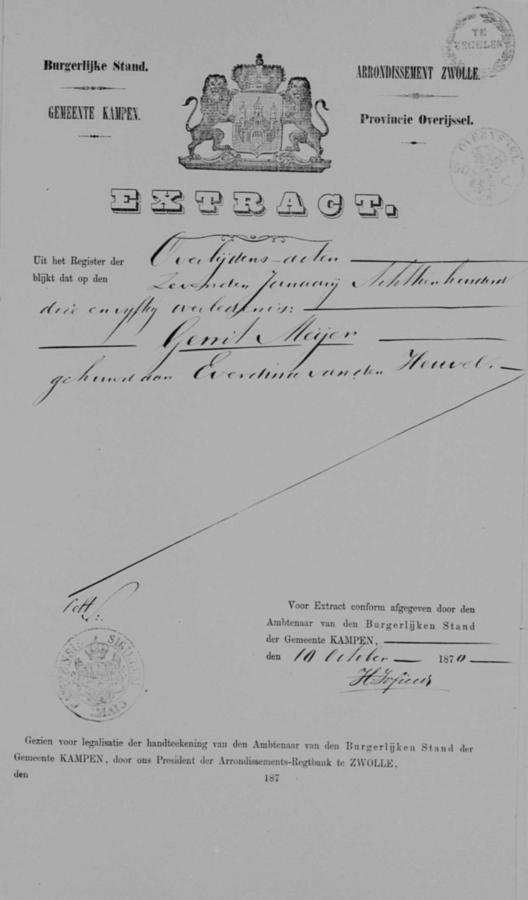 TE
ZEGELEN
Burgerlijke Stand.
GEMEENTE KAMPEN.
ARRONDISSEMENT ZWOLLE.
Provincie Overijssel.
OVERIJSSEL
EXTRACT.
Uit het Register der Overlijdens-acten
blijkt dat op den Zevenden Januarij Achttienhonderd
drie en vyftig overleden is:
Gerrit Meijer
gehuwd aan Everdina van den Heuvel.
Voor Extract conform afgegeven door den
Ambtenaar van den Burgerlijken Stand
der Gemeente KAMPEN,
den 10 October 1870
Gezien voor legalisatie der handteekening van den Ambtenaar van den Burgerlijken Stand der
Gemeente KAMPEN, door ons President der Arrondissements-Regtbank te ZWOLLE,
den 187